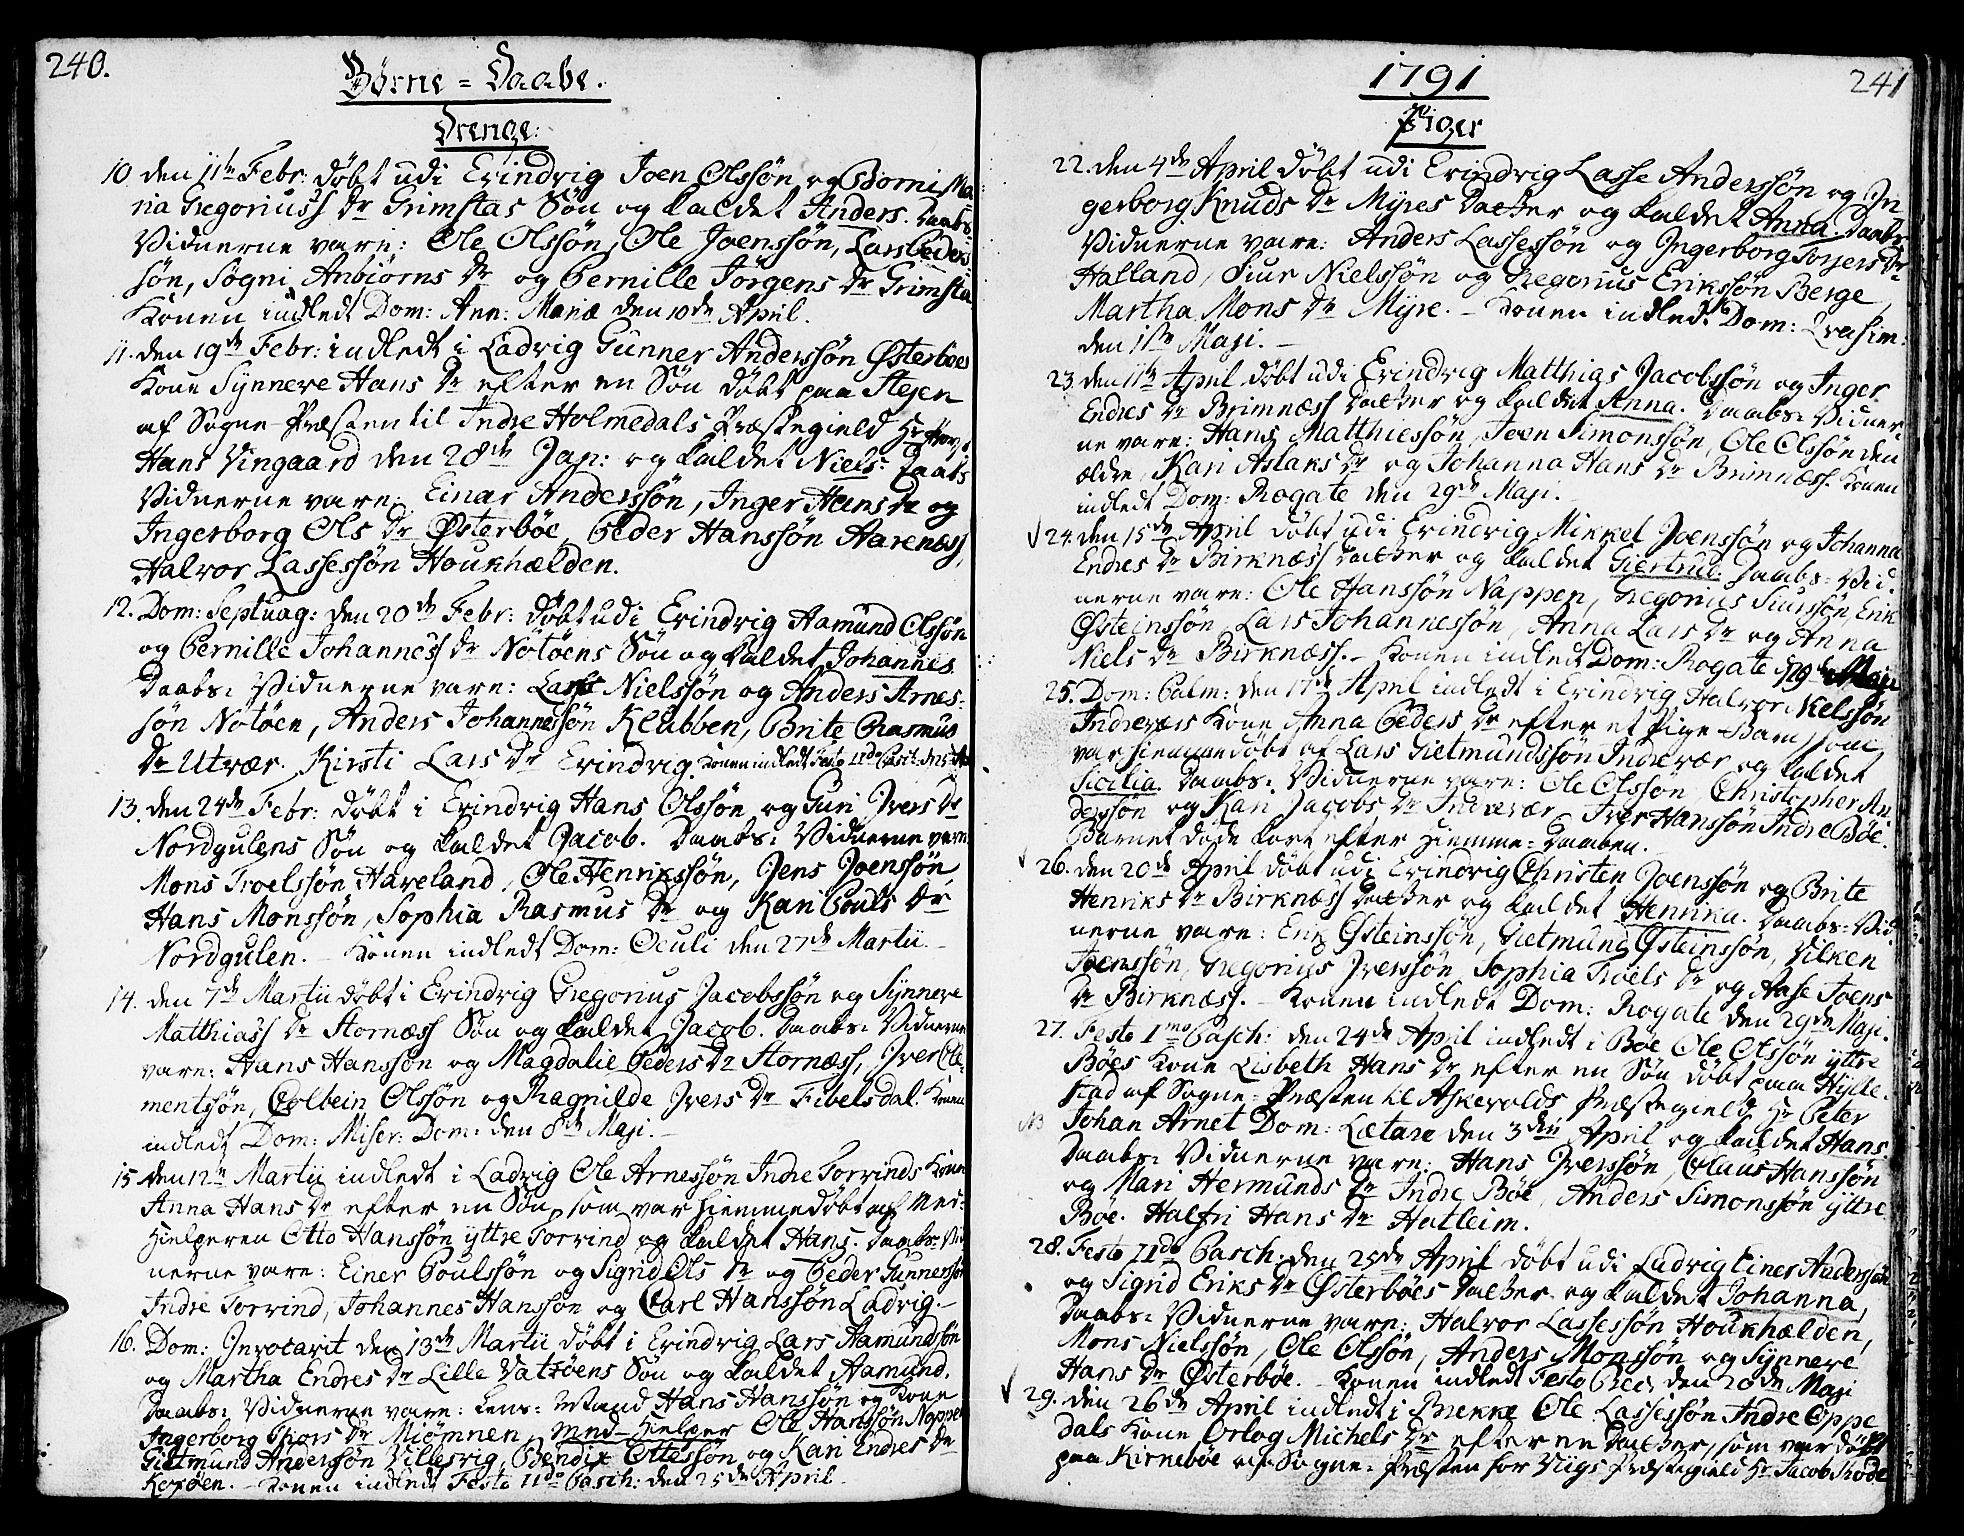 240.
Börne = Daabe.
Drenge:
10. den 11te Febr: döbt udi Evindvig Joen Olssön og Borni Ma-
ria Gregorius's Dr Grimstas Sön og kaldet Anders. Daabs-
Vidnerne vare: Ole Olssön, Ole Joenssön, Lars Peders-
sön, Sögni Anbiörns Dr og Pernille Jörgens Dr Grimsta
Konen indledt Dom: Ann: Mariæ den 10de April.
11. den 19de Febr: indledt i Ladvig Gunner Anderssön Østerböes
Kone Synneve Hans Dr efter en Sön döbt paa Stejen
af Sogne-Præsten til Indre Holmedals Præstegield Hr
Hans Vingaard den 28de Jan: og kaldet Niels. Daabs
Vidnerne vare: Einar Anderssön, Inger Hans Dr og
Ingerborg Ols Dr Østerböe, Peder Hanssön Aarenæss,
Halvor Lassessön Houkhælden.
12. Dom: Septuag: den 20de Febr: döbt udi Evindvig Aamund Olssön
og Pernille Johannes's Dr Nötöens Sön og kaldet Johannes.
Daabs: Vidnerne vare: Lars Nielssön og Anders Arnes-
sön Nötöen, Anders Johannessön Klubben, Brite Rasmus
Dr Utvær. Kirsti Lars Dr Evindvig. Konen indledt Festo IIdo Pasch: den 25de
13. den 24de Febr: döbt i Evindvig Hans Olssön og Guri Ivers Dr
Nordgulens Sön og kaldet Jacob. Daabs: Vidnerne vare:
Mons Troelssön Haveland, Ole Henrikssön, Jens Joenssön,
Hans Monssön, Sophia Rasmus Dr og Kari Pouls Dr
Nordgulen. – Konen indledt Dom: Oculi den 27de Martii. –
14. den 7de Martii döbt i Evindvig Gregorius Jacobssön og Synneve
Matthias's Dr Stornæss Sön og kaldet Jacob. Daabs: Vidnerne
vare: Hans Hanssön og Magdalie Peders Dr Stornæss, Iver Cle-
mentssön, Colbein Olssön og Ragnilde Ivers Dr Fibelsdal. Konen
indledt Dom: Miser: Dom: den 8de Maji. –
15. den 12te Martii indledt i Ladvig Ole Arnessön Indre Torvinds Kone
Anna Hans Dr efter en Sön, som var hiemmedöbt af Med-
hielperen Otto Hanssön yttre Torvind og kaldet Hans. Daabs: Vid
nerne vare: Einer Poulssön og Sigrid Ols Dr og Peder Gunnerssön
Indre Torvind, Johannes Hanssön og Carl Hanssön Ladvig. –
16. Dom: Invocavit den 13de Martii döbt i Evindvig Lars Aamundssön
og Martha Endres Dr Lille Vatsöens Sön og kaldet Aamund.
Daabs: Vidnerne vare: Lens: Mand Hans Hanssön og Kone
Ingerborg Thors Dr Miömnen, Med-Hielper Ole Hanssön Nappen
Gietmund Anderssön Villesvig, Bendix Ottessön og Kari Endres Dr
Kopöen. – Konen indledt Festo IIdo Pasch: den 25de April.
1791
241
Piger
22. den 4de April döbt udi Evindvig Lasse Anderssön og In-
gerborg Knuds Dr Myres Datter og kaldet Anna. Daabs
Vidnerne vare: Anders Lassessön og Ingerborg Torjers Dr
Halland, Siur Nielssön og Gregorius Erikssön Berge,
Martha Mons Dr Myre. – Konen indledt Dom: Qvasim:
den 1ste Maji. –
23. den 11te April döbt udi Evindvig Matthias Jacobssön og Inger
Endres Dr Brimnæss Datter og kaldet Anna. Daabs: Vidner-
ne vare: Hans Matthiessön, Joen Simonssön, Ole Olssön den
ældre, Kari Aslaks Dr og Johanna Hans Dr Brimnæss. Konen
indledt Dom: Rogate den 29de Maji.
24. den 15de April döbt udi Evindvig Mikkel Joenssön og Johanna
Endres Dr Birknæss Datter og kaldet Giertrud. Daabs: Vid-
nerne vare: Ole Hanssön Nappen, Gregorius Siurssön, Erik
Østeinssön, Lars Johannessön, Anna Lars Dr og Anna
Niels Dr Birknæss. – Konen indledt Dom: Rogate d. 29de Maji
25. Dom: Palm: den 17de April indledt i Evindvig Halvor Nielssön
Indrevers Kone Anna Peders Dr efter et Pige-Barn, som
var hiemmedöbt af Lars Gietmundssön Indrevær og kaldet
Sicilia. Daabs: Vidnerne vare: Ole Olssön, Christopher An-
derssön og Kari Jacobs Dr Indrevær, Iver Hanssön Indre Böe.
Barnet döde kort efter Hiemme-Daaben. –
26. den 20de April döbt udi Evindvig Christen Joenssön og Brite
Henriks Dr Birknæss Datter og kaldet Henrika. Daabs: Vid-
nerne vare: Erik Østeinssön, Gietmund Østeinssön, Vilken
Joenssön, Gregorius Iverssön, Sophia Troels Dr og Aase Joens
Dr Birknæss. – Konen indledt Dom: Rogate den 29de Maji.
27. Festo Imo Pasch: den 24de April indledt i Böe Ole Olssön yttre
Böes Kone Lisbeth Hans Dr efter en Sön döbt paa Hylle-
stad af Sogne-Præsten til Askevolds Præstegield Hr Peter
NB Johan Arnet Dom: Lætare den 3die April og kaldet Hans.
Daabs: Vidnerne vare: Hans Iverssön, Claus Hanssön
og Mari Hermunds Dr Indre Böe, Anders Simonssön yttre
Böe. Halfri Hans Dr Hatleim.
28. Festo IIdo Pasch: den 25de April döbt udi Ladvig Einer Anderssön
og Sigrid Eriks Dr Østerböes Datter og kaldet Johanna,
Daabs: Vidnerne vare: Halvor Lassessön Houkhælden,
Mons Nielssön, Ole Olssön, Anders Monssön og Synneve
Hans Dr Østerböe. – Konen indledt Festo Prec: den 20de Maji
29. den 26de April indledt i Brekke Ole Lassessön Indre Oppe-
dals Kone Orlog Michels Dr efter en Datter, som var döbt
paa Kirneböe af Sogne-Præsten for Viigs Præstegield Hr Jacob Rode